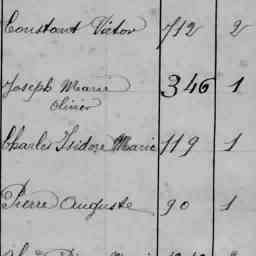 Constant Victor 712 2
Joseph Marie 346 1
Olivier
Charles Isidore Marie 119 1
Pierre Auguste 90 1